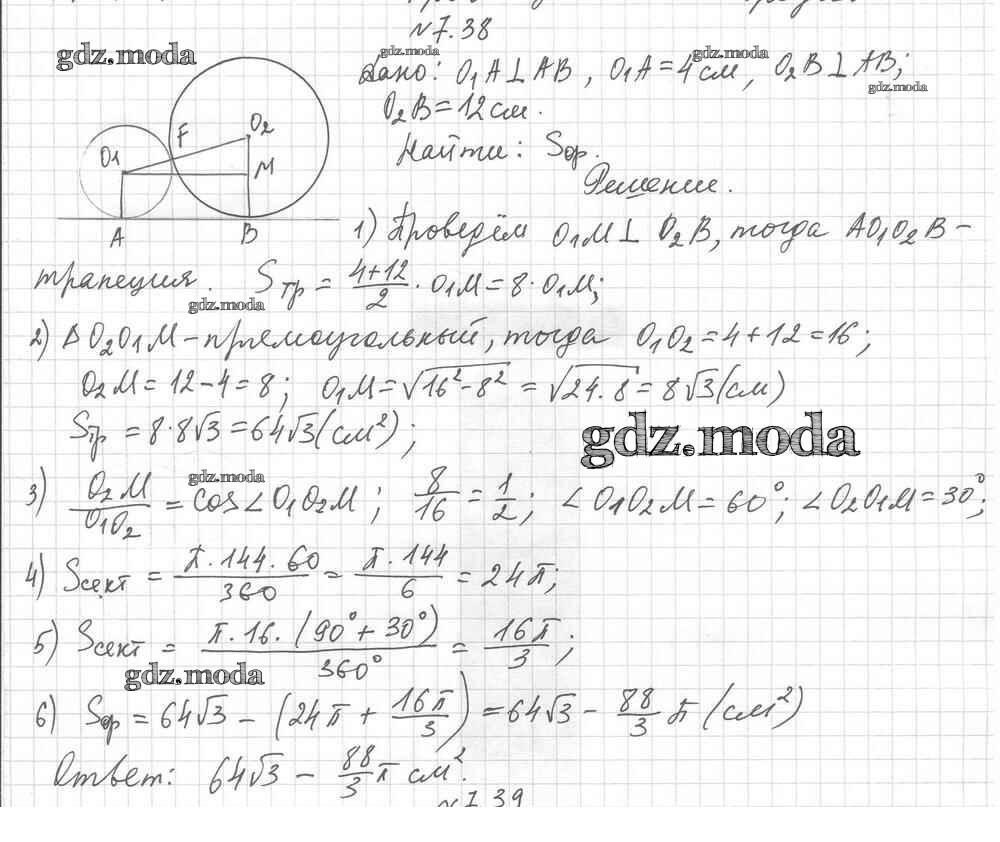 №7.38
gdz.moda
gdz.moda
gdz.moda
Дано: O₁A⊥AB, O₁A=4см, O₂B⊥AB;
gdz.moda
O₂B=12см.
Найти: Sφ.
Решение.
O1
F
O2
M
A
B
1) Проведём O₁M⊥O₂B, тогда AO₁O₂B –
трапеция. Sтр = 4+12/2 · O₁M = 8·O₁M;
gdz.moda
2) ΔO₂O₁M – прямоугольный, тогда O₁O₂=4+12=16;
O₂M=12-4=8; O₁M=√16²-8² = √24·8 = 8√3(см)
Sтр = 8·8√3=64√3(см²);
gdz.moda
gdz.moda
3) O₂M/O₁O₂ = cos∠O₁O₂M; 8/16 = 1/2; ∠O₁O₂M=60°; ∠O₂O₁M=30°;
4) Sсект = π·144·60/360 = π·144/6 = 24π;
5) Sсект = π·16·(90°+30°)/360° = 16π/3;
gdz.moda
6) Sφ = 64√3 – (24π + 16π/3) = 64√3 – 88/3 π (см²)
Ответ: 64√3 – 88/3 π см².
№7.39